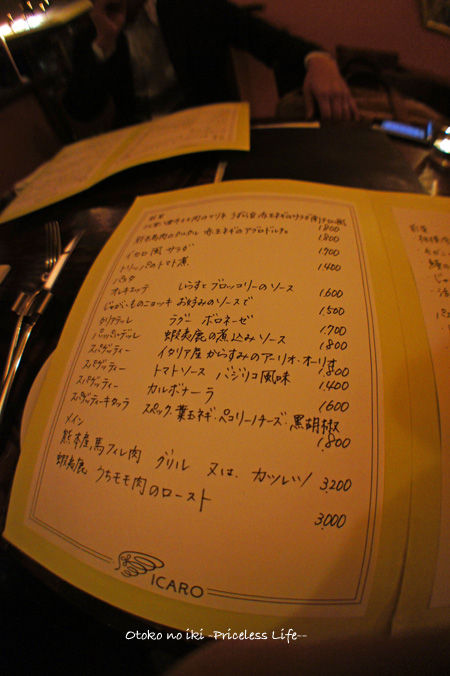 前菜
1,800
熊本産馬肉のかんかん 赤玉ネギのアグロドルチェ
1,800
イカロ風 サラダ
1,700
トリッパのトマト煮
1,400
パスタ
オレキエッテ しらすと ブロッコリーのソース
1,600
じゃがいものニョッキ お好みのソースで
1,500
タリアテッレ ラグー ボロネーゼ
1,700
パッパルデッレ 蝦夷鹿の煮込みソース
1,800
スパゲッティー イタリア産 からすみのアーリオ・オーリオ
1,800
スパゲッティー トマトソース バジリコ風味
1,400
スパゲッティー カルボナーラ
1,600
スパゲッティキタッラ スペック・葉玉ネギ・ペコリーノチーズ・黒胡椒
1,800
メイン
熊本産馬フィレ肉 グリル 又は、カツレツ
3,200
蝦夷鹿 うちモモ肉のロースト
3,000
ICARO
前菜
Otoko no iki -Priceless Life--